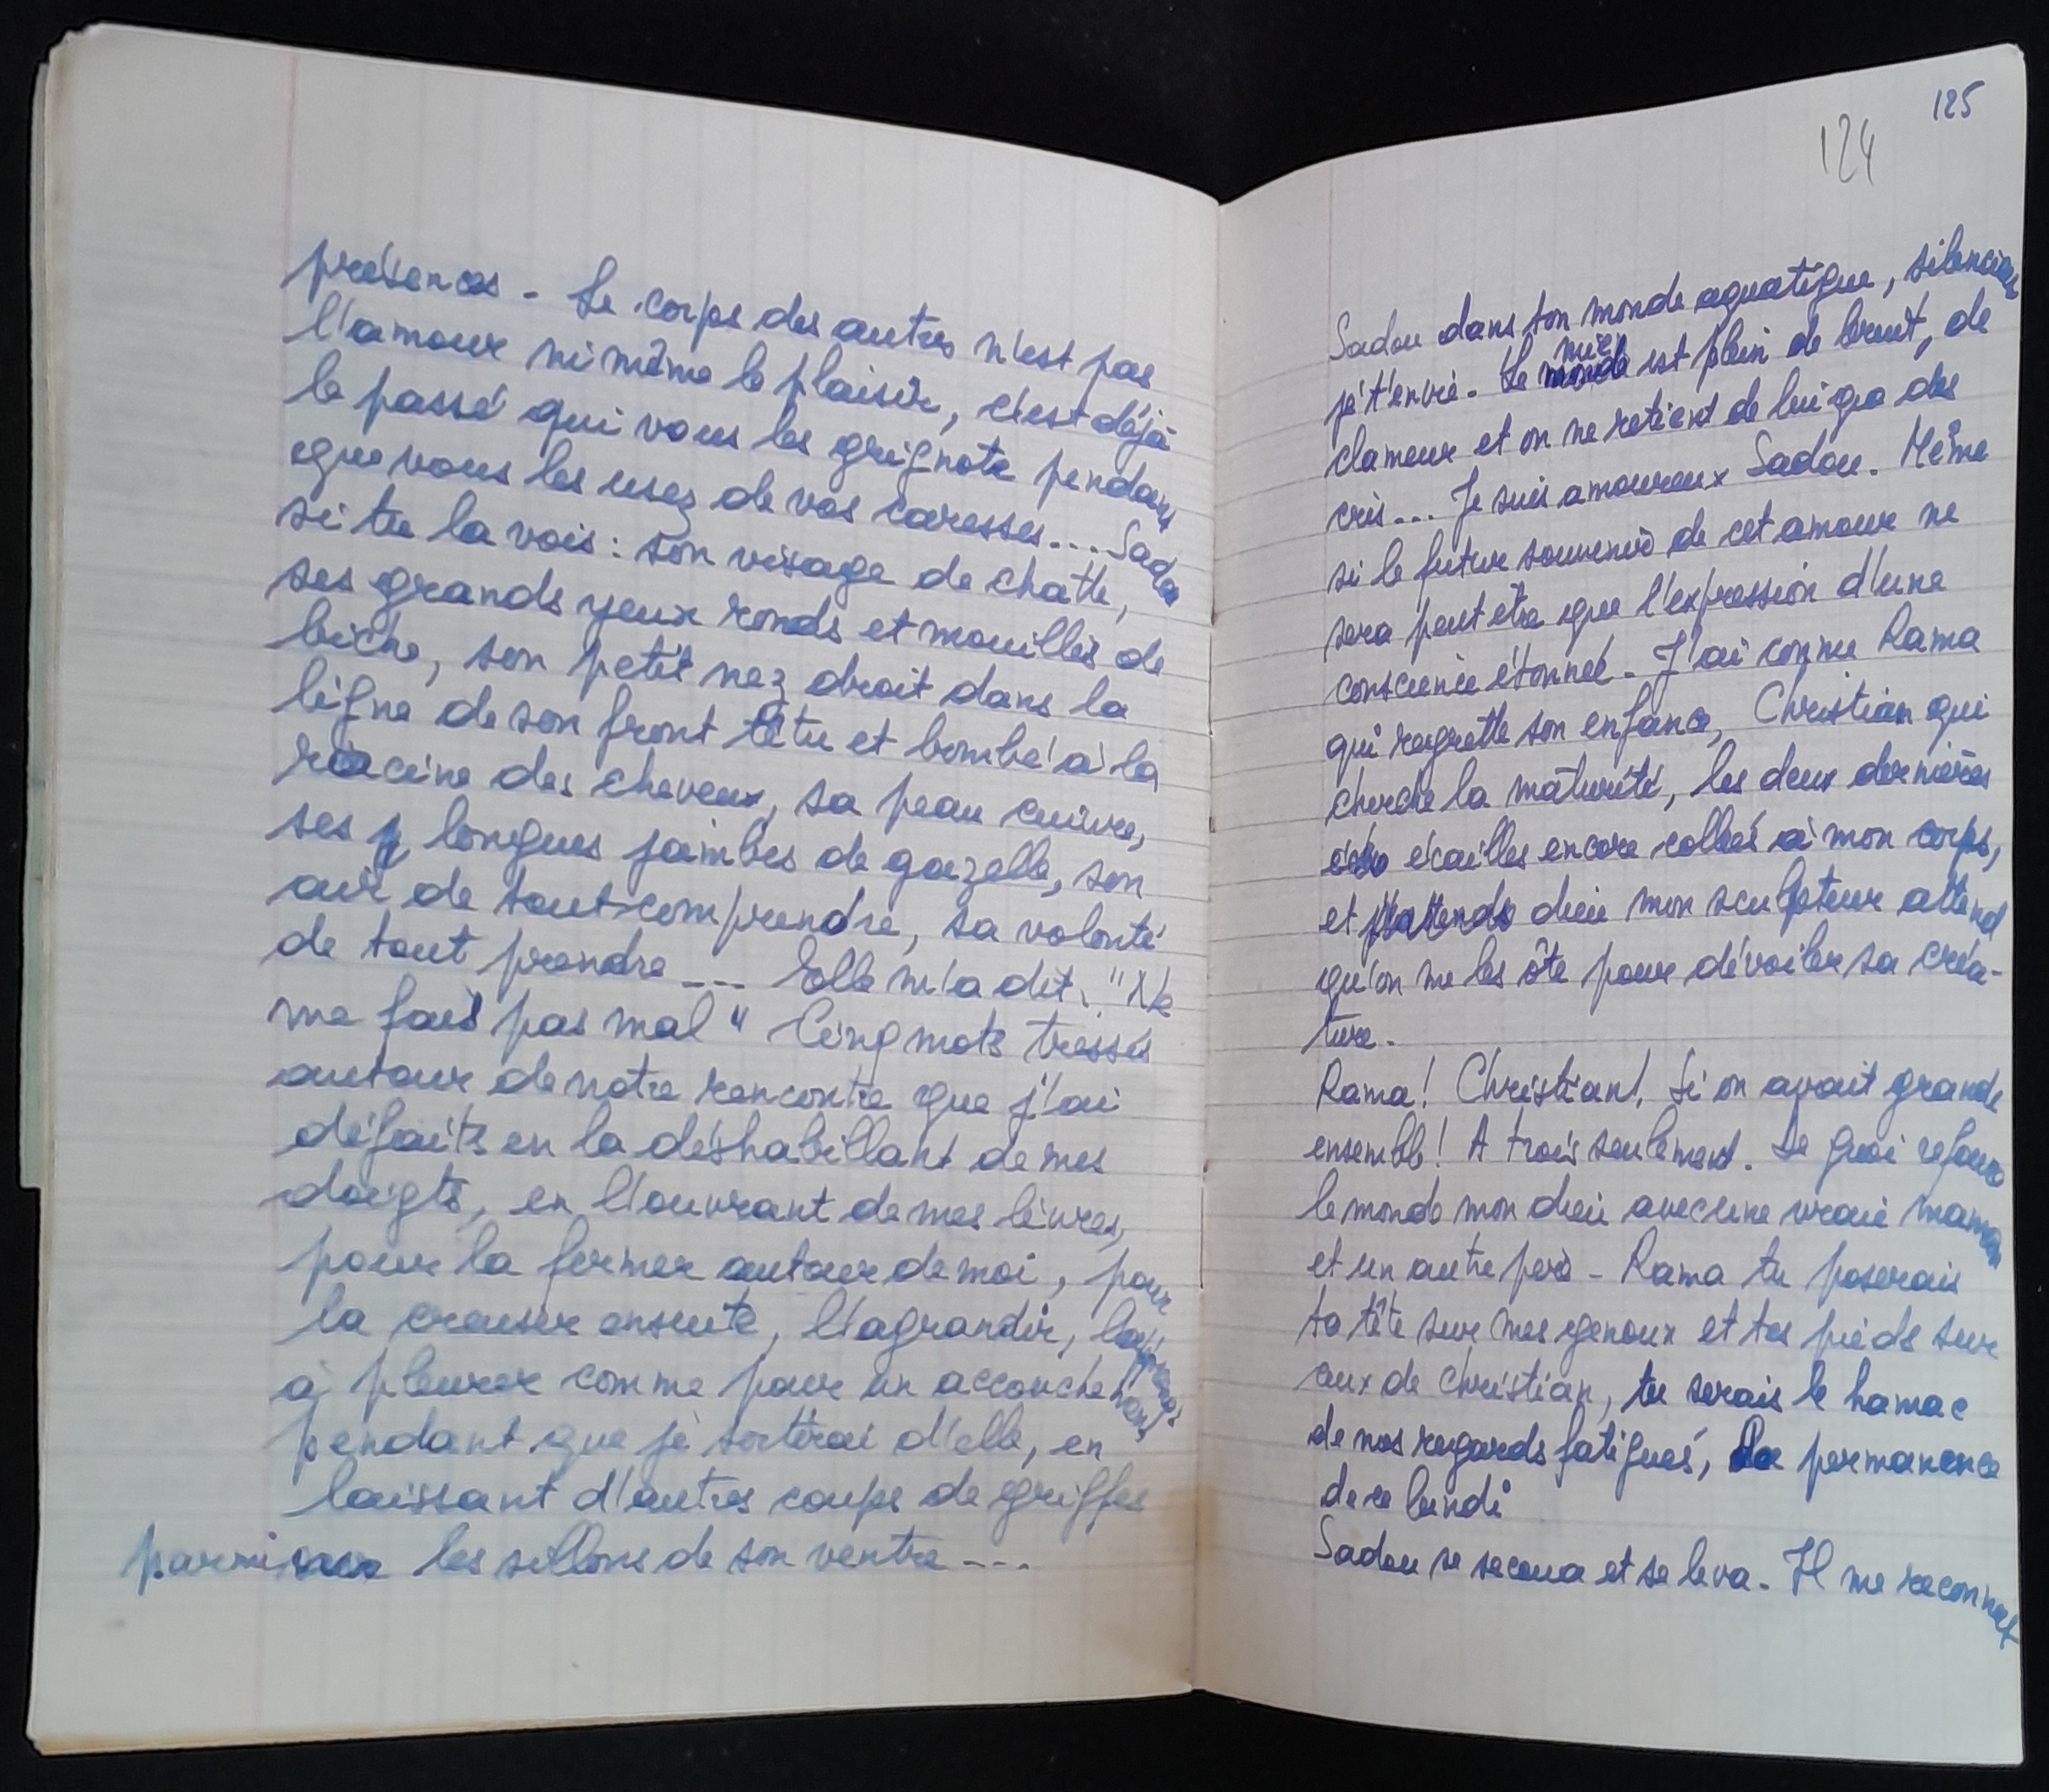 présences - Le corps des autres n'est pas
l'amour ni même le plaisir, c'est déjà
le passé qui vous les grignote pendant
que vous les usez de vos caresses.... Sadou
si tu la vois : son visage de chatte,
ses grands yeux ronds et mouillés de
biche, son petit nez droit dans la
ligne de son front têtu et bombé à la
racine des cheveux, sa peau cuivre,
ses longues jambes de gazelle, son
air de tout comprendre, sa volonté
de tout prendre --- Elle m'a dit : "Ne
me fais pas mal" Cinq mots tressés
autour de notre rencontre que j'ai
défaits en la déshabillant de mes
doigts, en l'ouvrant de mes lèvres,
pour la fermer autour de moi, pour
la creuser ensuite, l'agrandir,
à pleurer comme pour un accouchement
pendant que je sortirai d'elle, en
laissant d'autres coups de griffes
parmi les sillons de son ventre ---
125
124
Sadou dans ton monde aquatique, silencieux
je t'envie. Le mien est plein de bruit, de
clameur et on ne retient de lui que des
cris... Je suis amoureux Sadou. Même
si le futur souvenir de cet amour ne
sera peut etre que l'expression d'une
conscience étonnée. J'ai connu Rama
qui regrette son enfance, Christian qui
cherche la mâturité, les deux dernières
écailles encore collées à mon corps,
et dieu mon sculpteur attend
qu'on me les ôte pour dévoiler sa créa-
ture.
Rama! Christian! Si on avait grandi
ensemble! A trois seulement. De quoi refaire
le monde mon dieu avec une vraie maman
et un autre père - Rama tu poserais
ta tête sur mes genoux et tes pieds sur
ceux de Christian, tu serais le hamac
de nos regards fatigués, la permanence
de ce lundi
Sadou se secoua et se leva. Il me reconnut